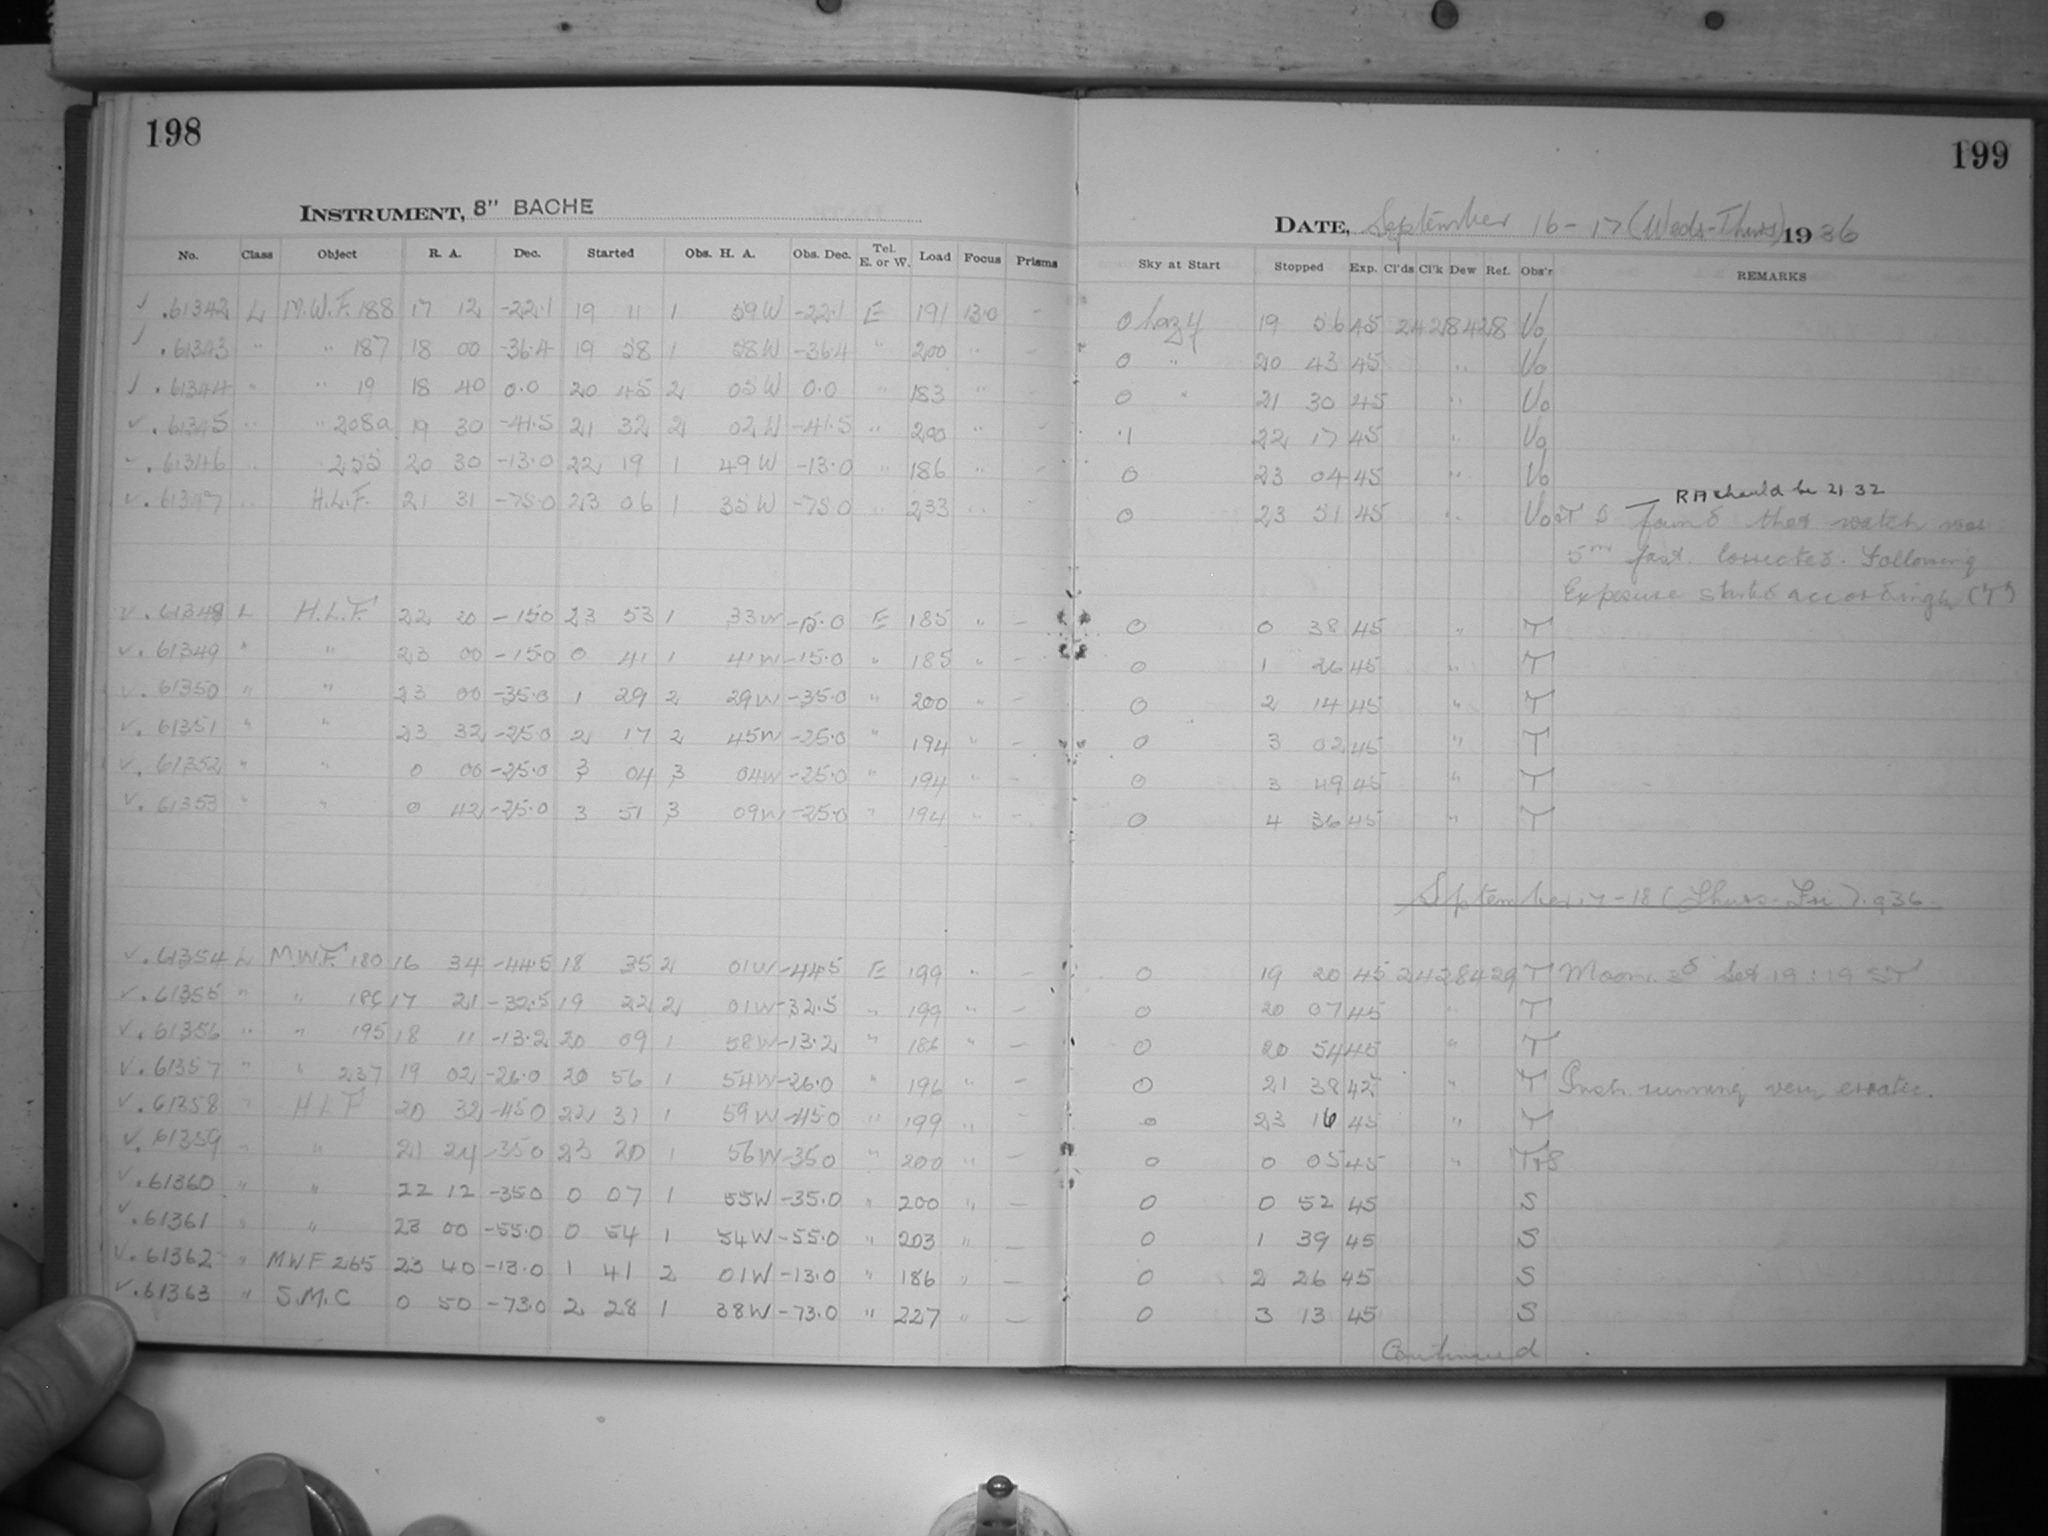 198
199
INSTRUMENT, 8" BACHE
DATE, September 16-17 (Weds-Thurs) 1936
No. Class Object R. A. Dec. Started Obs. H. A. Obs. Dec. Tel. E. or W. Load Focus Prisms Sky at Start Stopped Exp. Cl'ds Cl'k Dew Ref. Obs'r REMARKS
√ .61342 L M.W.F. 188 17 12 -22.1 19 11 1 59W -22.1 E 191 13.0 - 0 hazy 19 56 45 24 28 428 Vo
√ .61343 " " 187 18 00 -36.4 19 58 1 58W -36.4 " 200 " - 0 " 20 43 45 " Vo
√ .61344 " " 19 18 40 0.0 20 45 2 05W 0.0 " 183 " - 0 " 21 30 45 " Vo
√ .61345 " " 208a 19 30 -41.5 21 32 2 02W -41.5 " 200 " - .1 22 17 45 " Vo
√ .61346 " " 255 20 30 -13.0 22 19 1 49W -13.0 " 186 " - 0 23 04 45 " Vo
RA should be 21 32
√ .61347 " H.L.F. 21 31 -75.0 23 06 1 35W -75.0 " 233 " - 0 23 51 45 " Vo+T Found that watch was
5m fast. Corrected. Following
Exposure started accordingly (T)
√ .61348 L H.L.F. 22 20 -15.0 23 53 1 33W -15.0 E 185 " - 0 0 38 45 " T
√ .61349 " " 23 00 -15.0 0 41 1 41W -15.0 " 185 " - 0 1 26 45 " T
√ .61350 " " 23 00 -35.0 1 29 2 29W -35.0 " 200 " - 0 2 14 45 " T
√ .61351 " " 23 32 -25.0 2 17 2 45W -25.0 " 194 " - 0 3 02 45 " T
√ .61352 " " 0 00 -25.0 3 04 3 04W -25.0 " 194 " - 0 3 49 45 " T
√ .61353 " " 0 42 -25.0 3 51 3 09W -25.0 " 194 " - 0 4 36 45 " T
September 17-18 (Thurs-Fri) 936
√ .61354 L M.W.F. 180 16 34 -44.5 18 35 2 01W -44.5 E 199 " - 0 19 20 45 24 28 429 T Moon. Set 19:19 ST
√ .61355 " " 17 21 -32.5 19 22 2 01W -32.5 " 199 " - 0 20 07 45 " T
√ .61356 " " 195 18 11 -13.2 20 09 1 58W -13.2 " 186 " - 0 20 54 45 " T
√ .61357 " " 237 19 02 -26.0 20 56 1 54W -26.0 " 196 " - 0 21 38 42 " T Inst. running very erratic.
√ .61358 " H.L.F 20 32 -45.0 22 31 1 59W -45.0 " 199 " 0 23 16 45 " T
√ .61359 " " 21 24 -35.0 23 20 1 56W -35.0 " 200 " - 0 0 05 45 " T+S
√ .61360 " " 22 12 -35.0 0 07 1 55W -35.0 " 200 " - 0 0 52 45 S
√ .61361 " " 23 00 -55.0 0 54 1 54W -55.0 " 203 " - 0 1 39 45 S
√ .61362 " MWF 265 23 40 -13.0 1 41 2 01W -13.0 " 186 " - 0 2 26 45 S
√ .61363 " S.M.C 0 50 -73.0 2 28 1 38W -73.0 " 227 " - 0 3 13 45 S
Continued